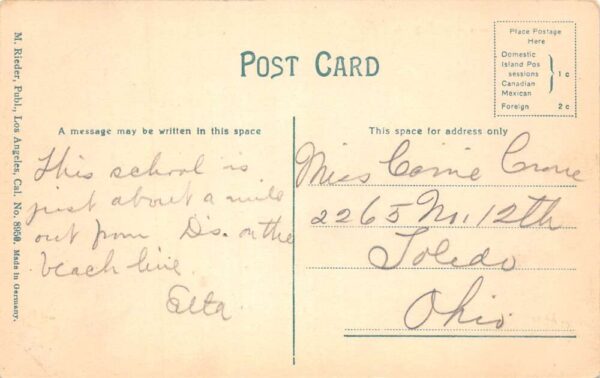 POST CARD
Place Postage
Here
Domestic
Island Pos
sessions
Canadian
Mexican
1 c
Foreign 2 c
A message may be written in this space
This school is
just about a mile
out from D's. on the
beach line.
Elta.
This space for address only
Miss Carrie Crane
2265 No. 12th
Toledo
Ohio
M. Rieder, Publ., Los Angeles, Cal. No. 8950. Made in Germany.